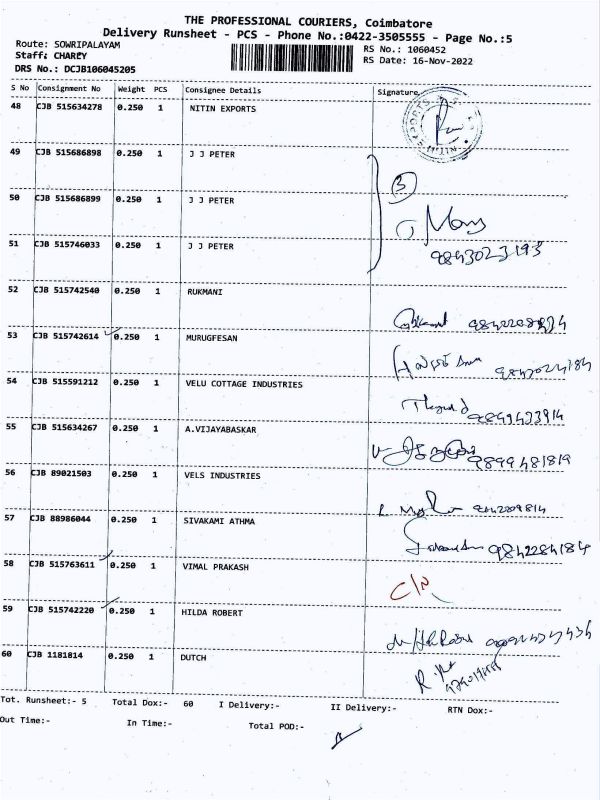 THE PROFESSIONAL COURIERS, Coimbatore
Delivery Runsheet - PCS - Phone No.:0422-3505555 - Page No.:5
Route: SOWRIPALAYAM RS No.: 1060452
Staff: CHARLY RS Date: 16-Nov-2022
DRS No.: DCJB106045205
S No Consignment No Weight PCS Consignee Details Signature
48 CJB 515634278 0.250 1 NITIN EXPORTS
49 CJB 515686898 0.250 1 J J PETER
3
50 CJB 515686899 0.250 1 J J PETER
51 CJB 515746033 0.250 1 J J PETER
9843023193
52 CJB 515742540 0.250 1 RUKMANI
53 CJB 515742614 0.250 1 MURUGFESAN
54 CJB 515591212 0.250 1 VELU COTTAGE INDUSTRIES
55 CJB 515634267 0.250 1 A.VIJAYABASKAR
56 CJB 89021503 0.250 1 VELS INDUSTRIES
57 CJB 88986044 0.250 1 SIVAKAMI ATHMA
9842284184
58 CJB 515763611 0.250 1 VIMAL PRAKASH
C/N
59 CJB 515742220 0.250 1 HILDA ROBERT
60 CJB 1181014 0.250 1 DUTCH
Tot. Runsheet:- 5 Total Dox:- 60 I Delivery:- II Delivery:- RTN Dox:-
Out Time:- In Time:- Total POD:-